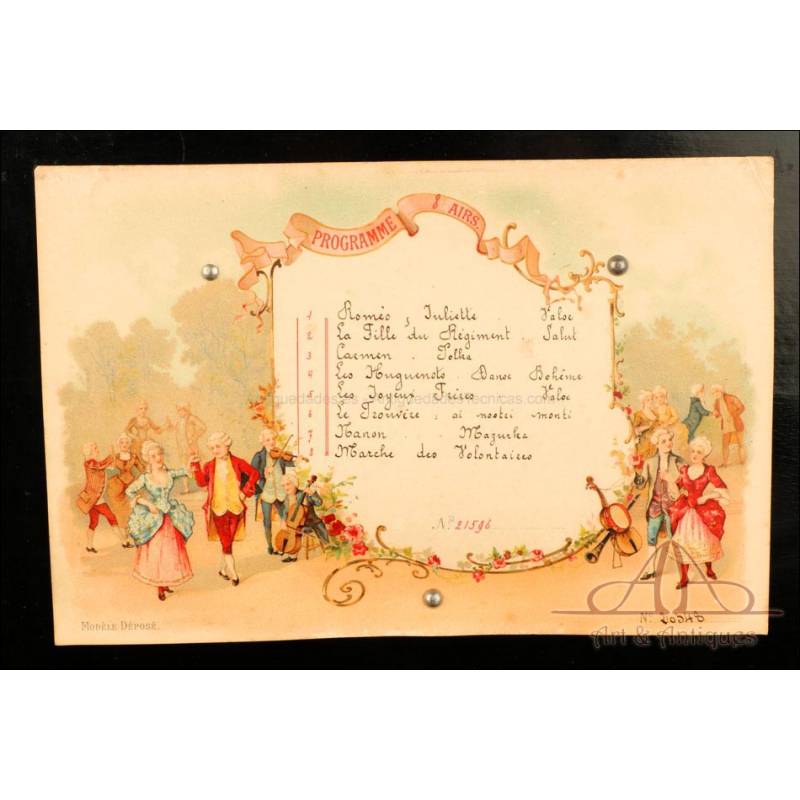 PROGRAMME 8 AIRS.
1 Roméo & Juliette . Valse
2 La Fille du Régiment . Salut
3 Carmen . Polka
4 Les Huguenots . Danse Bohème
5 Les Joyeux Frères . Valse
6 Le Trouvère : ai nostri monti
7 Manon . . Mazurka
8 Marche des Volontaires
Nº 21596
MODÈLE DÉPOSÉ.
Art & Antiques